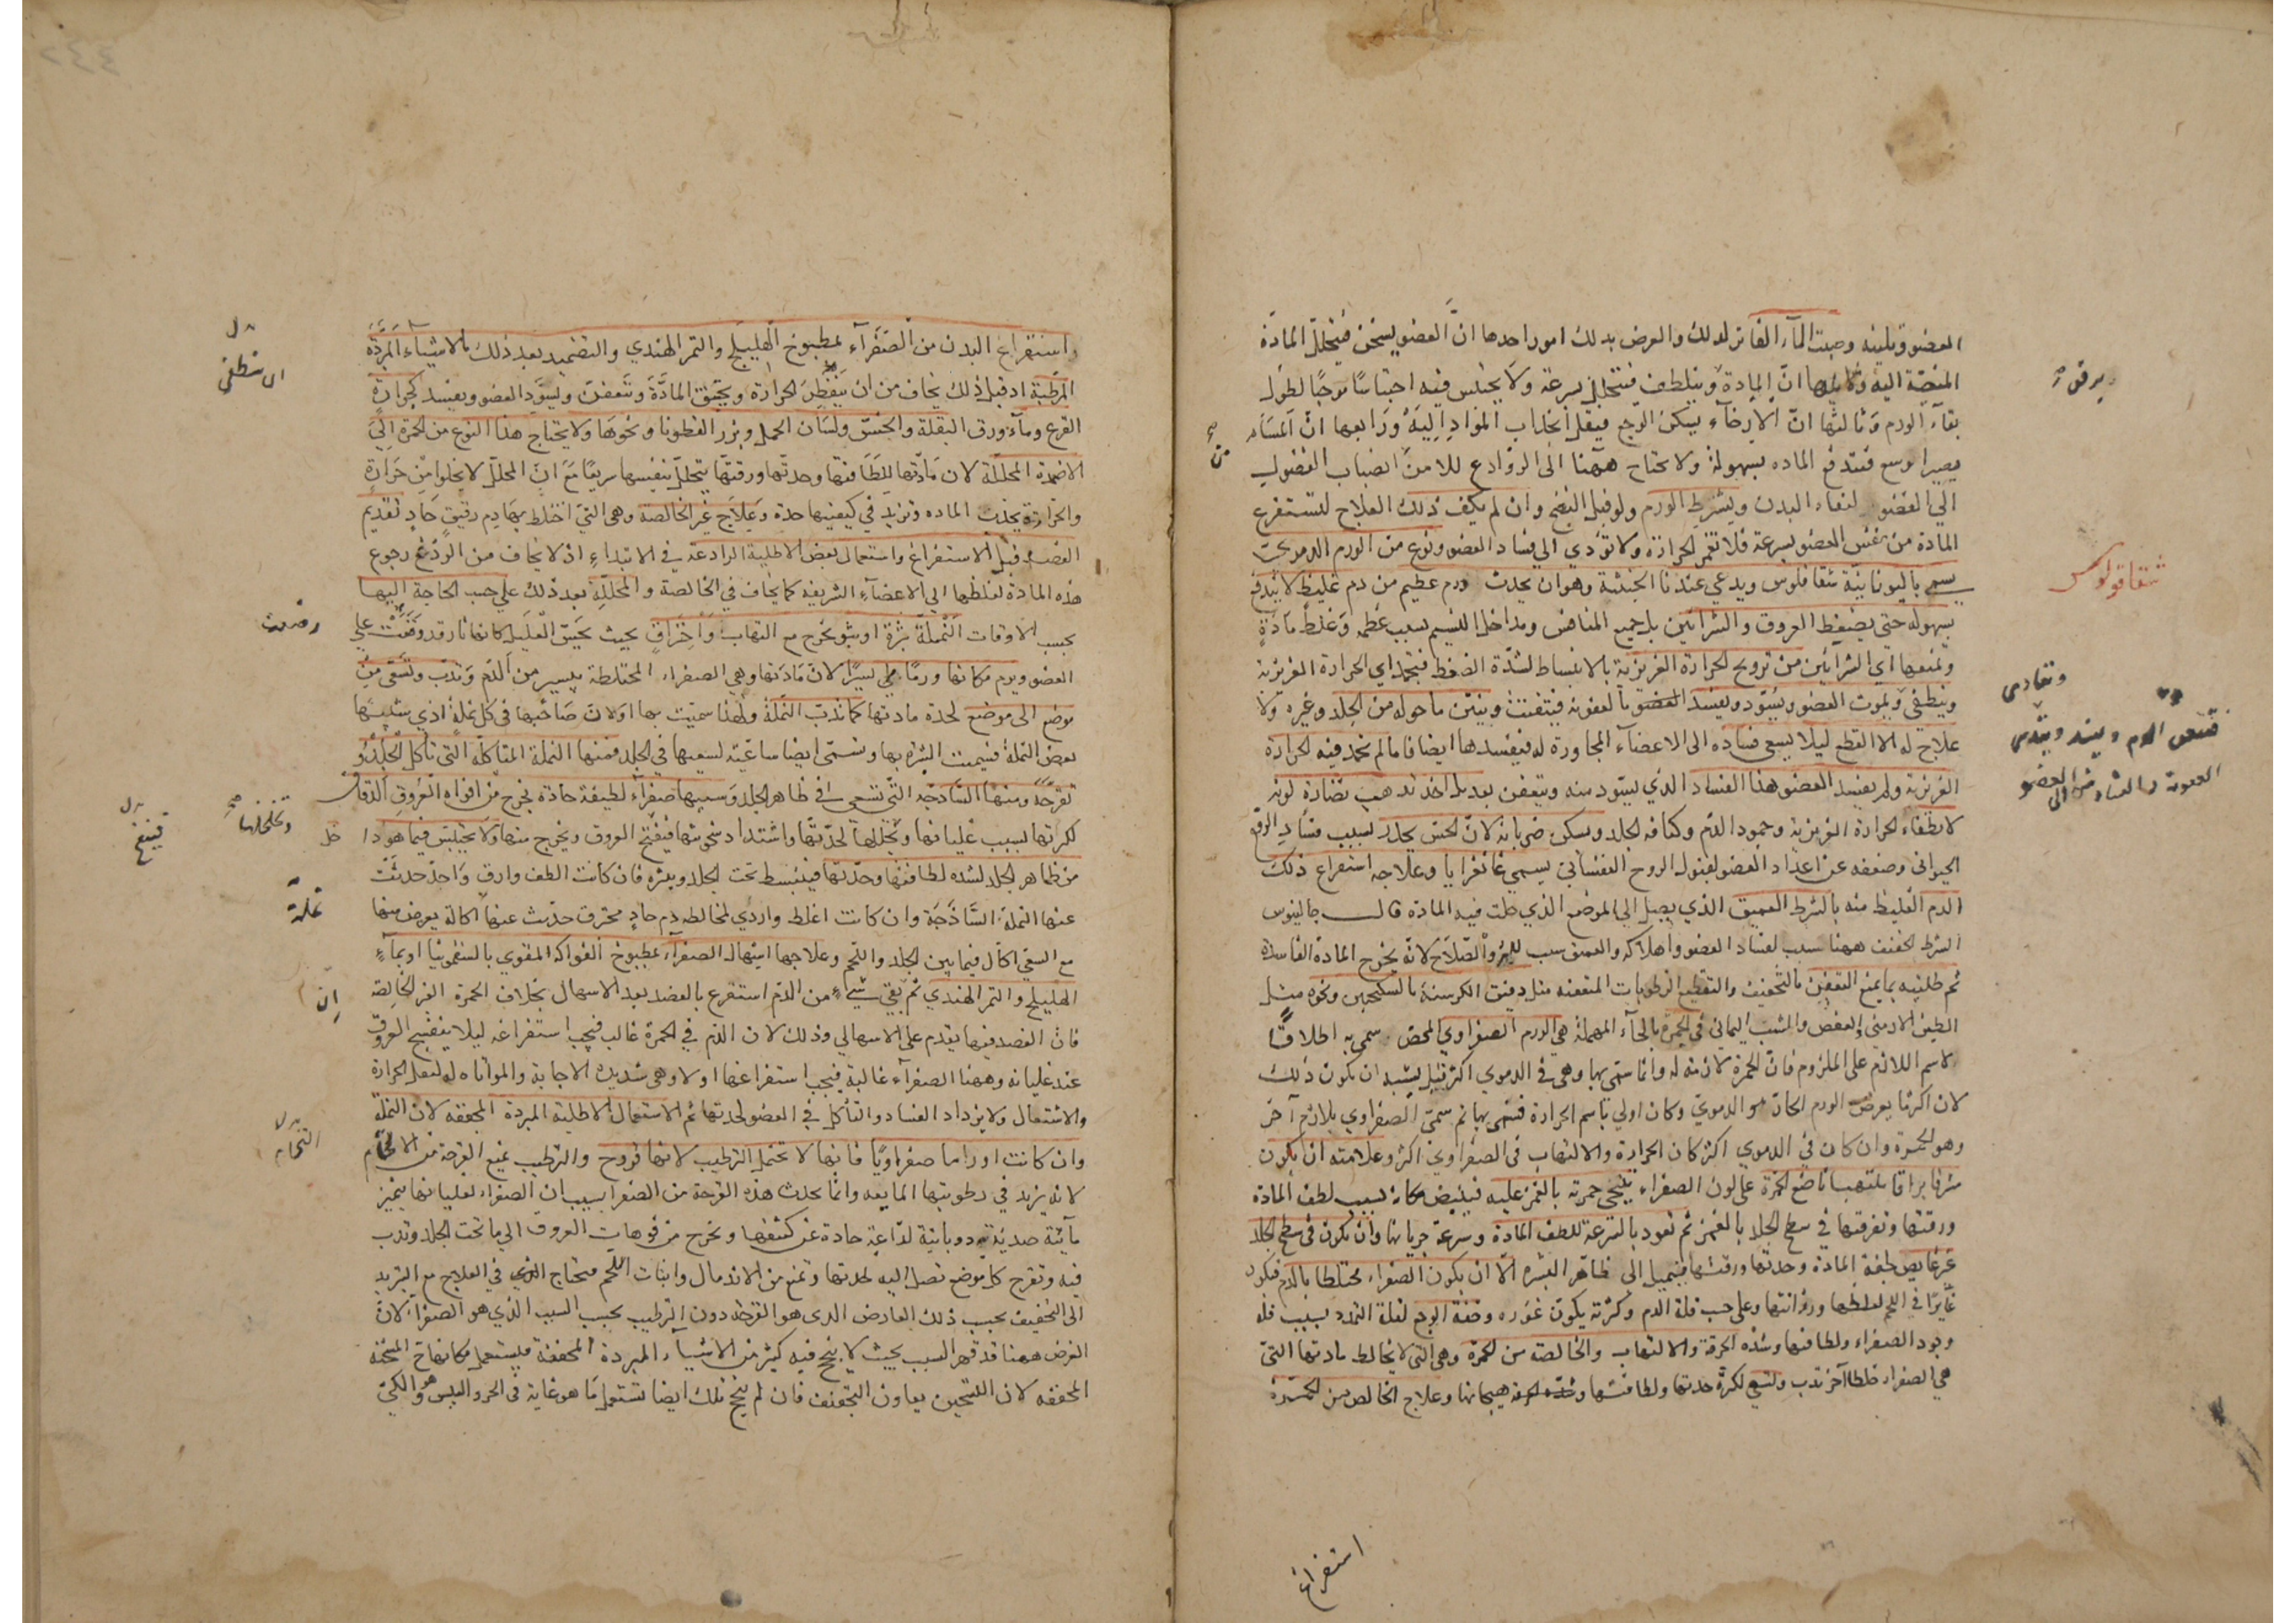 العضو وتليينه وصب المآء الفاتر لذلك والغرض بذلك امور احدها انّ العضو يسخن فيتحلّل المادة
المنصبّة اليه وثانيها انّ المادة ويتلطف فيتحلل بسرعة ولا يحتبس فيه احتباسًا موجبًا لطول
بقآء الورم وثالثها انّ الارخآء يسكن الوجع فيقل انجذاب المواد اليه ورابعها انّ المسام
يصير اوسع فتندفع الماده بسهولة ولا يحتاج ههنا الى الروادع للامن انصباب الفضول
الي العضو لنقاء البدن ويشرط الورم ولو قبل النضج وان لم يكف ذلك العلاج لتستفرغ
المادة من نفس العضو بسرعة فلا تغمر الحرارة ولا تؤدي الي فساد العضو ونوع من الورم الدموي
يسمي باليونانية شقاقلوس ويدعي عندنا الخبيثة وهو ان يحدث ورم عظيم من دم غليظ لا يندفع
بسهوله حتى يضغط العروق والشرائين بل جميع المنافس ومداخل النسيم بسبب عظمه وغلظ مادة
وتمنعها اي الشرائين من ترويح الحرارة الغريزية بالانبساط لشدّة الضغط فيخمد اي الحرارة الغريزية
وينطفي ويموت العضو ويسود ويفسد العضو بالعفونة فيتفتت وينتن ما حوله من الجلد وغيره ولا
علاج له الا القطع ليلا يسعي فساده الى الاعضآء المجاورة له فيفسدها ايضا فاما لم تخمد فيه الحرارة
الغريزية ولم يفسد العضو هذا الفساد الذي يسود منه ويتعفن بعد بل اخذ تذهب نضارة لونه
لانطفاء الحرارة الغريزية وجمود الدم وكثافة الجلد ويسكن ضربانه لانّ الحس يخدر بسبب فساد الروح
الحيواني وضعفه عن اعداد العضو لقبول الروح النفساني يسمي غانغرايا وعلاجه استفراغ ذلك
الدم الغليظ منه بالشرط العميق الذي يصل الي الموضع الذي حلت فيه المادة قال جالينوس
الشرط الخفيف ههنا سبب لفساد العضو واهلاكه والعميق سبب للبرؤ والصّلاح لانّه يخرج المادة الفاسدة
ثم طليه بما يمنع التعفين بالتجفيف والتقطيع الرطوبات المتعفنة مثل دقيق الكرسنة بالسكنجبين ونحوه مثل
الطين الارمني والعفص والشب اليماني في الحمرة بالحآء المهملة هي الورم الصفراوي المحض سمي به اطلاقًا
لاسم اللازم على الملزوم فانّ الحمرة لازمة له وانما سمّي بها وهي في الدموي اكثر قيل يشبه ان يكون ذلك
لان اكثر ما يعرض الورم الحارّ هو الدموي وكان اولي باسم الحرارة فسمي بها ثم سمي الصفراوي بلازم آخر
وهو الحمرة وان كان في الدموي اكثر كان الحرارة والالتهاب في الصفراوي اكثر وعلامته ان يكون
مشرقا براقا ملتهبا ناصع الحمرة على لون الصفراء يتنحى حمرته بالغمز عليه فيبيض مكانه بسبب لطف المادة
ورقتها وتفرقها في سطح الجلد بالغمز ثم تعود بالسرعة للطف المادة وسرعة جريانها وان يكون في سطح الجلد
غير غايص لخفة المادة وحدتها ورقتها فيميل الى ظاهر البشرة الّا ان يكون الصفراء مختلطا بالدم فيكون
غايرًا في اللحم لغلظها ورزانتها وعلى حسب قلة الدم وكثرته يكون غوره وخفة الوجع لقلة التمدد بسبب قلة
وجود الصفراء ولطافتها وشدّة الحرقة والالتهاب والخالصة من الحمرة وهي التى لا يخالط مادتها التى
هي الصفراء خلطا آخر تدب وتسعي لكثرة حدتها ولطافتها وشدّة هيجانها وعلاج الخالص من الحمرة
ويرق
شقاقولوس
استفراغ
واستفراغ البدن من الصّفرآء بمطبوخ الهليلج والتمر الهندي والتضميد بعد ذلك بالاشيآء المبرّدة
المرطبة اذ قبل ذلك يخاف من ان الحرارة ويحتقن المادّة وتتعفن ويسوّد العضو ويفسد كجرادة
القرع ومآء ورق البقلة والخسّ ولسان الحمل وبزر القطونا ونحوها ولا يحتاج هذا النوع من الحمرة الى
الاضمدة المحللة لان مادّتها للطافتها وحدتها ورقتها يتحلل بنفسها سريعًا مع انّ المحلّل لا يخلوا من حرارة
والحرارة يجذب الماده وتزيد في كيفيتها حدة وعلاج غير الخالصة وهى التى اختلط بها دم رقيق حاد تقديم
الفصد قبل الاستفراغ واستعمال بعض الاطلية الرادعة في الابتداء اذ لا يخاف من الردع رجوع
هذه المادة لغلظها الي الاعضآء الشريفة كما يخاف في الخالصة والمحللة بعد ذلك على حسب الحاجة اليها
بحسب الاوقات النّملة بثرة او بثور يخرج مع التهاب واحتراق بحيث يحسّ العليل كانها نار قد وقعت على
العضو ويرم مكانها ورمًا يسيرًا لانّ مادتها وهي الصفراء المختلطة بيسير من الدّم وتدبّ وتسعي من
موضع الى موضع لحدة مادتها كما تدبّ النّملة ولهذا سميت بها اولانّ صاحبها في كل نملة اذي شبيهًا
بعض النّملة فسميت البثرة بها وتسمى ايضا ساعية لسعيها في الجلد فمنها النملة المتاكلة التى تأكل الجلد
تقرحًه ومنها السّاذجة التى تسعي في ظاهر الجلد وسببها صفرآء لطيفة حادة يخرج من افواه العروق الدقاق
لكثرتها بسبب غليانها وتخللها لحدّتها واشتداد سخونتها فيفتح العروق ويخرج منها ولا يحتبس فيما هو داخل
من ظاهر الجلد لشده لطافتها وحدّتها فينبسط تحت الجلد ويبثره فان كانت الطف وارق واحدّ حدثت
عنها النملة السّاذجة وان كانت اغلظ واردي لمخالطه دم حاد محترق حدّث عنها اكالة يعرض منها
مع السعي اكّال فيما بين الجلد واللحم وعلاجها اسهال الصفرآء بمطبوخ الفواكه المقوي بالسقمونيا او بمآء
الهليلج والتمر الهندي ثم بقي شيء من الدّم استفرغ بالفصد بعد الاسهال بخلاف الحمرة الغير الخالصة
فانّ الفصد فيها يتقدم على الاسهالى وذلك لان الدم في الحمرة غالب فيجب استفراغه ليلا ينفتح العروق
عند غليانه وههنا الصفرآء غالبة فيجب استفراغها اولا وهى شديدة الاجابة والمواتاه له لتقل الحرارة
والاشتعال ولا يزداد الفساد والتآكل في العضو لحدتها ثم الاستعمال الاطلية المبردة المجففه لان النملة
وان كانت اوراما صفراويًا فانها لا تحتمل الترطيب لانها قروح والترطيب يمنع القرحة من الالتحام
لانه يزيد في رطوبتها المايعه وانما يحدث هذه القرحة من الصفرا بسبب ان الصفراء لغليانها يتميز
مآئية صديديّة ذوبانية لذّاعة حادة عن كثيفها ويخرج من فوهات العروق الي ما تحت الجلد وتدب
فيه وتقرح كل موضع تصل اليه لحدتها وتمنع من الاندمال وانبات اللحم فيحتاج في العلاج مع التبريد
الى التجفيف بحسب ذلك العارض الذى هو القرحة دون الترطيب بحسب السبب الذي هو الصفرآء لانّ
الغرض ههنا قد قهر السبب بحيث لا ينجح فيه كثير من الاشيآء المبردة المجففة فيستعمل مكانها المسخنة
المجففه لان التسخين يعاون التجفيف فان لم ينجح تلك ايضا تستعمل ما هو غاية فى الحر واليبس وهو الكيّ
نملة
انّ